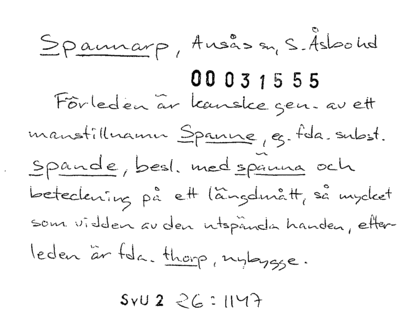 Spannarp, Ausås sn, S. Åsbo hd
00031555
Förleden är kanske gen. av ett
manstillnamn Spanne, eg. fda. subst.
spande, besl. med spänna och
beteckning på ett längdmått, så mycket
som vidden av den utspända handen, efter-
leden är fda. thorp, nybygge.
SvU 2 26:1147